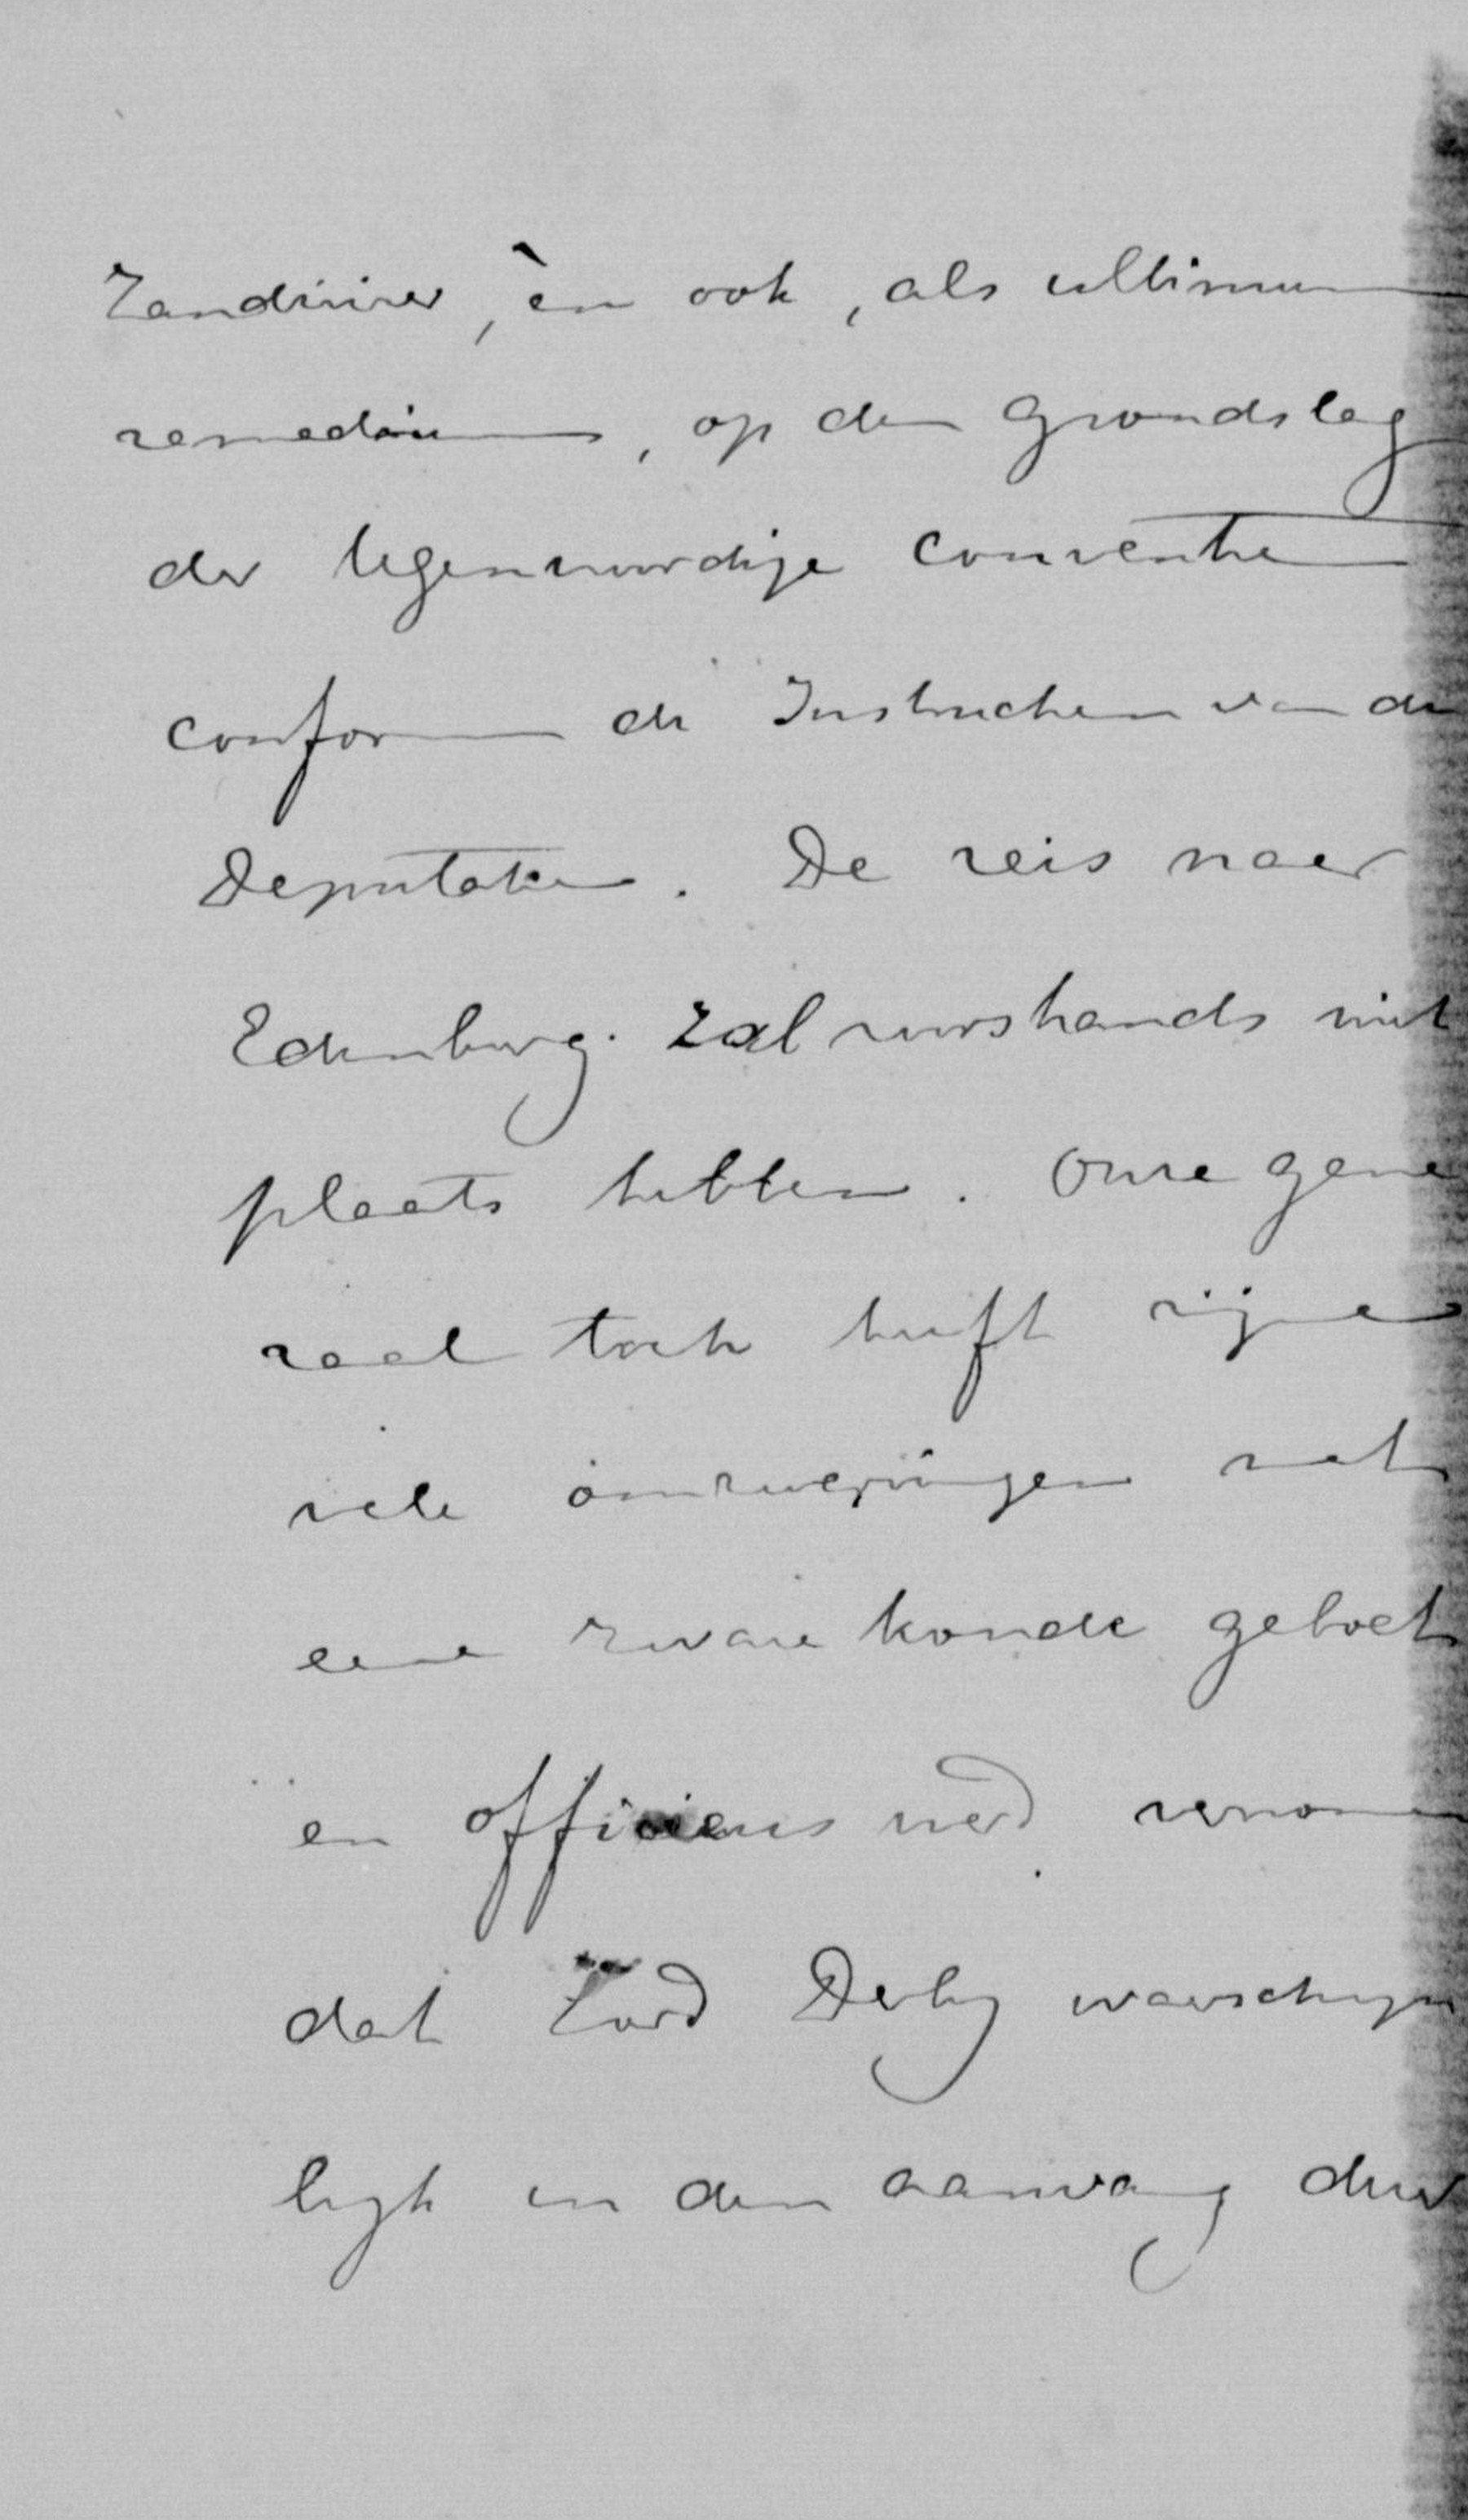 Zandrivier, èn ook, als ultimum
remedium, op den grondslag
der tegenwoordige conventie
conform de Instructien van de
Deputatie. De reis naar
Edenburg. zal voorshands niet
plaats hebben. Onze gene
raal toch heeft zijne
vele omzwervingen met
eene zware koude geboet
en officieus werd vernomen
dat Lord Derby waarschijn
lijk in den aanvang dezer